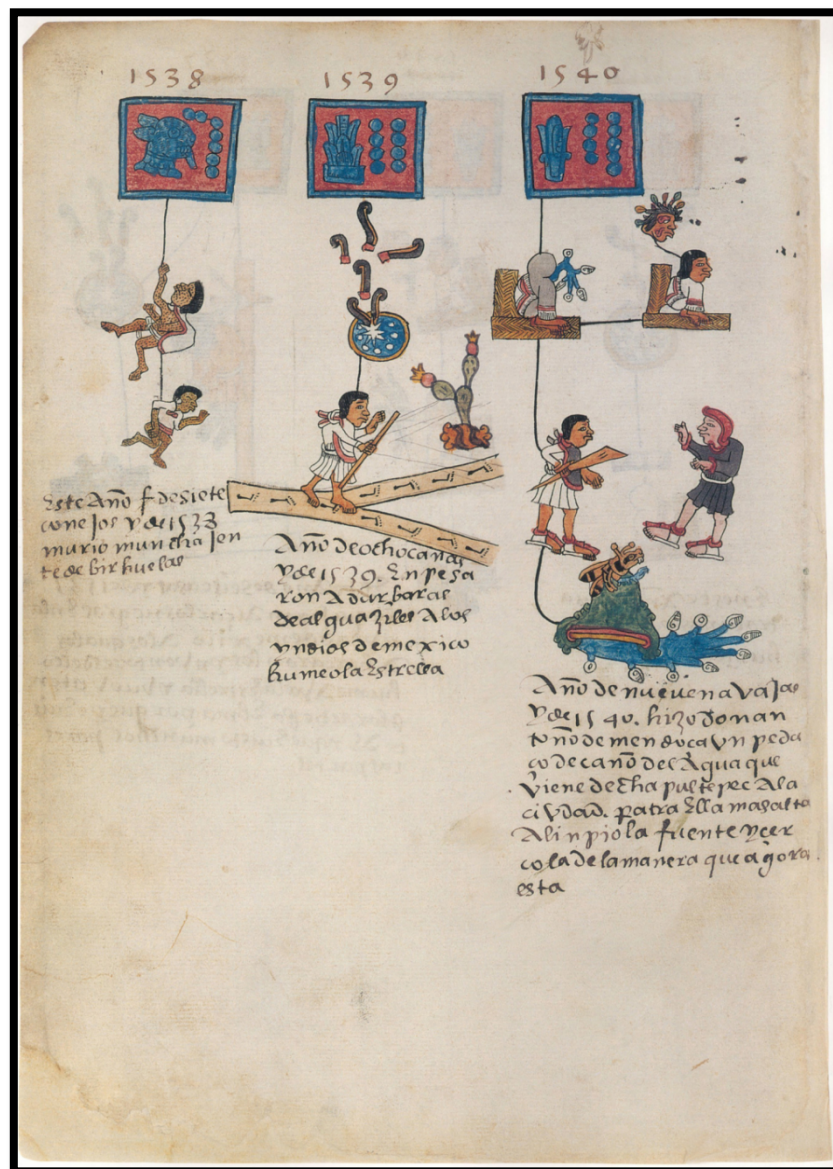 1538
1539
1540
Este Año f de siete
conejos y de 1538
murio muncha jen
te de birhuelas
Año de ocho cañas
y de 1539. En pesa
ron A dar baras
de alguaziles A los
yndios de mexico
humeo la Estrella
Año de nueue navajas
y de 1540. hizo don an
toño de mendoca vn peda
co de caño del Agua que
viene de chapultepec Ala
civdad. patra Ella mas alto
Alinpio la fuente y cer
cola de la manera que agora
esta